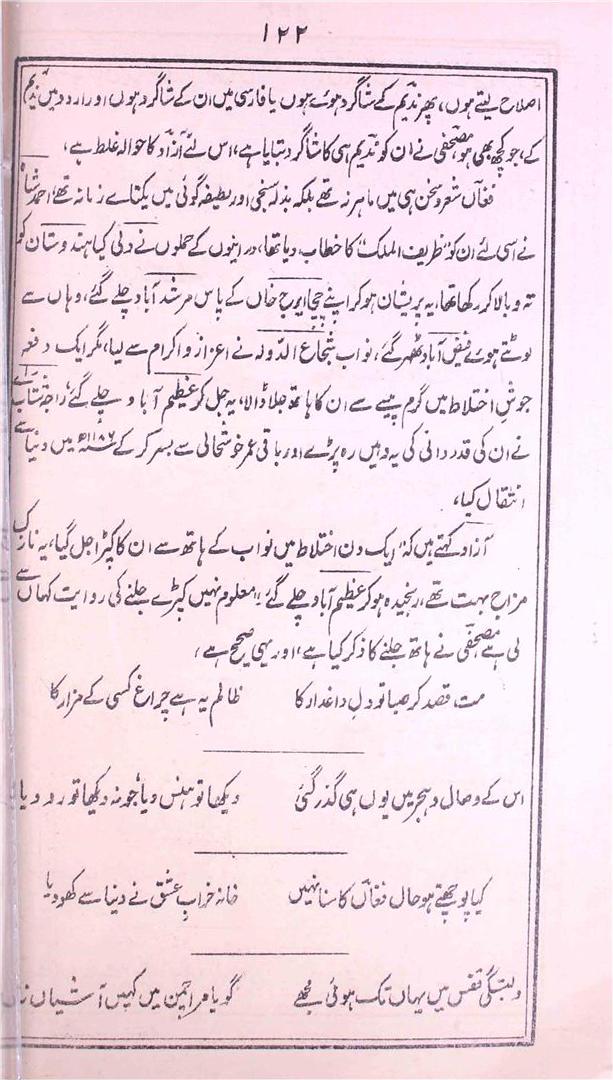 ۱۲۲
اصلاح لیتے ہوں، پھر ندیم کے شاگرد ہوئے ہوں یا فارسی میں ان کے شاگرد ہوں اور اردو میں ندیم
کے، جو کچھ بھی ہو، مصحفی نے ان کو ندیم ہی کا شاگرد بتایا ہے، اس لئے آزاد کا حوالہ غلط ہے،
فغاں شعر و سخن ہی میں ماہر نہ تھے بلکہ بذلہ سنجی اور لطیفہ گوئی میں یکتائے زمانہ تھے، احمد شاہ
نے اسی لئے ان کو "ظریف الملک" کا خطاب دیا تھا، درانیوں کے حملوں نے دلی کیا ہندوستان کو
تہ و بالا کر رکھا تھا، یہ پریشان ہو کر اپنے چچا ایرج خاں کے پاس مرشد آباد چلے گئے، وہاں سے
لوٹتے ہوئے فیض آباد ٹھہر گئے، نواب شجاع الدولہ نے اعزاز و اکرام سے لیا، مگر ایک دفعہ
جوش اختلاط میں گرم پیسے سے ان کا ہاتھ جلا ڈالا، یہ جل کر عظیم آباد چلے گئے، راجہ شتاب رائے
نے ان کی قدر دانی کی یہ وہیں رہ پڑے اور باقی عمر خوشحالی سے بسر کر کے ۱۱۸۶ھ میں دنیا سے
انتقال کیا،
آزاد کہتے ہیں کہ "ایک دن اختلاط میں نواب کے ہاتھ سے ان کا کپڑا جل گیا، یہ نازک
مزاج بہت تھے، رنجیدہ ہو کر عظیم آباد چلے گئے" معلوم نہیں کپڑے جلنے کی روایت کہاں سے
لی ہے مصحفی نے ہاتھ جلنے کا ذکر کیا ہے، اور یہی صحیح ہے،
مت قصد کر صبا تو دلِ داغدار کا ظالم یہ ہے چراغ کسی کے مزار کا
اس کے وصال و ہجر میں یوں ہی گذر گئی دیکھا تو ہنس دیا، جو نہ دیکھا تو رو دیا
کیا پوچھتے ہو حال فغاں کا سنا نہیں خانہ خراب عشق نے دنیا سے کھو دیا
وابستگی قفس میں یہاں تک ہوئی مجھے گویا مرا چمن میں کہیں آشیاں